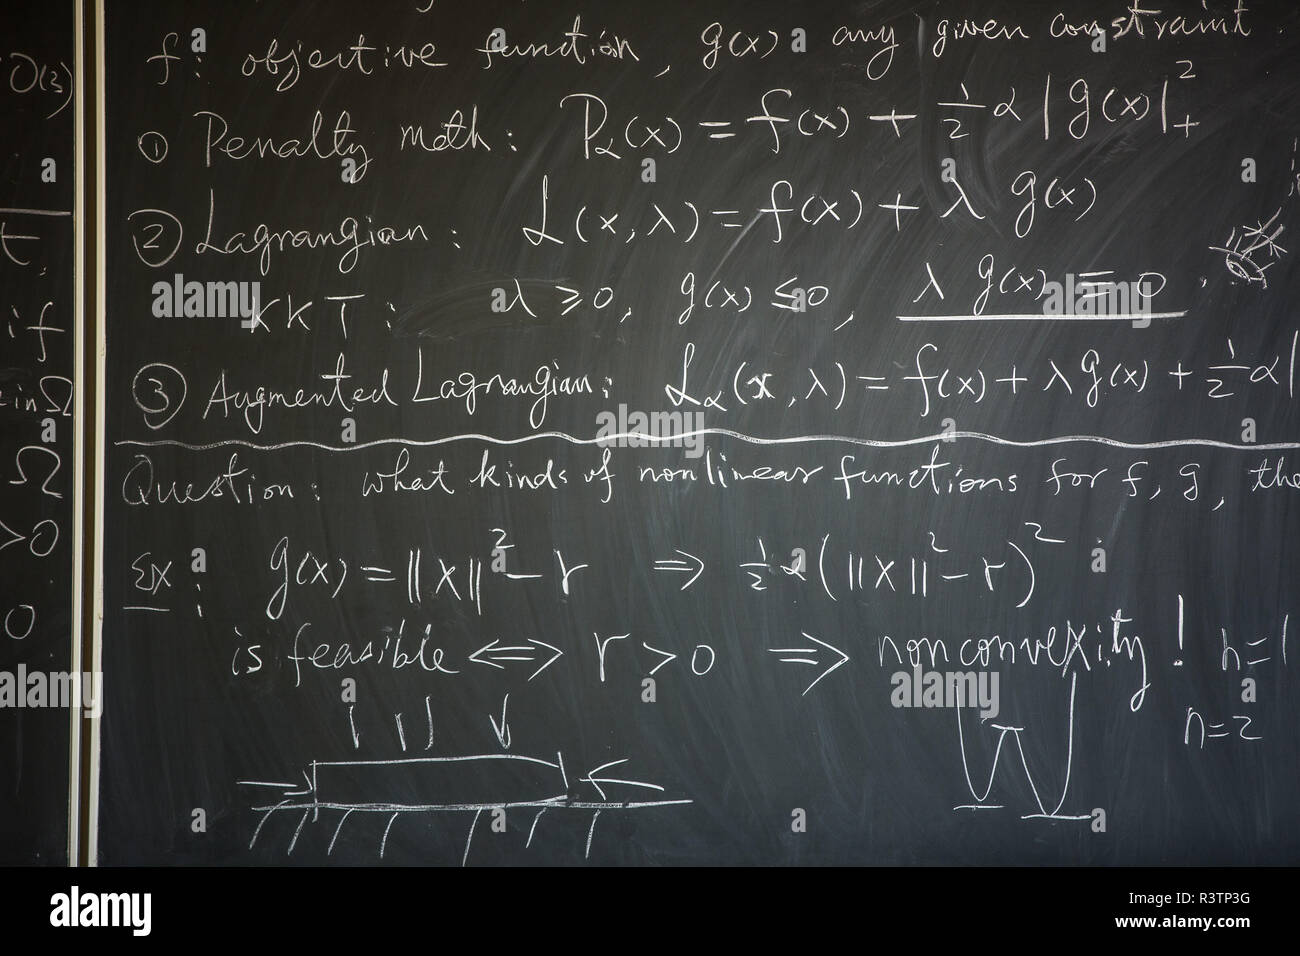 O(3)
t,
if
in Ω
Ω
>0
0
f: objective function, g(x) any given constraint.
① Penalty meth: Pα(x) = f(x) + ½ α |g(x)|²₊
② Lagrangian: ℒ(x, λ) = f(x) + λ g(x)
KKT: λ ⩾ 0, g(x) ≤ 0, λ g(x) = 0.
③ Augmented Lagrangian: ℒα(x, λ) = f(x) + λ g(x) + ½ α |
Question: what kinds of nonlinear functions for f, g, the
Ex: g(x) = ||x||² - r ⇒ ½ α (||x||² - r)²
is feasible ⟺ r > 0 ⇒ nonconvexity! n=1
n=2
alamy
Image ID: R3TP3G
www.alamy.com